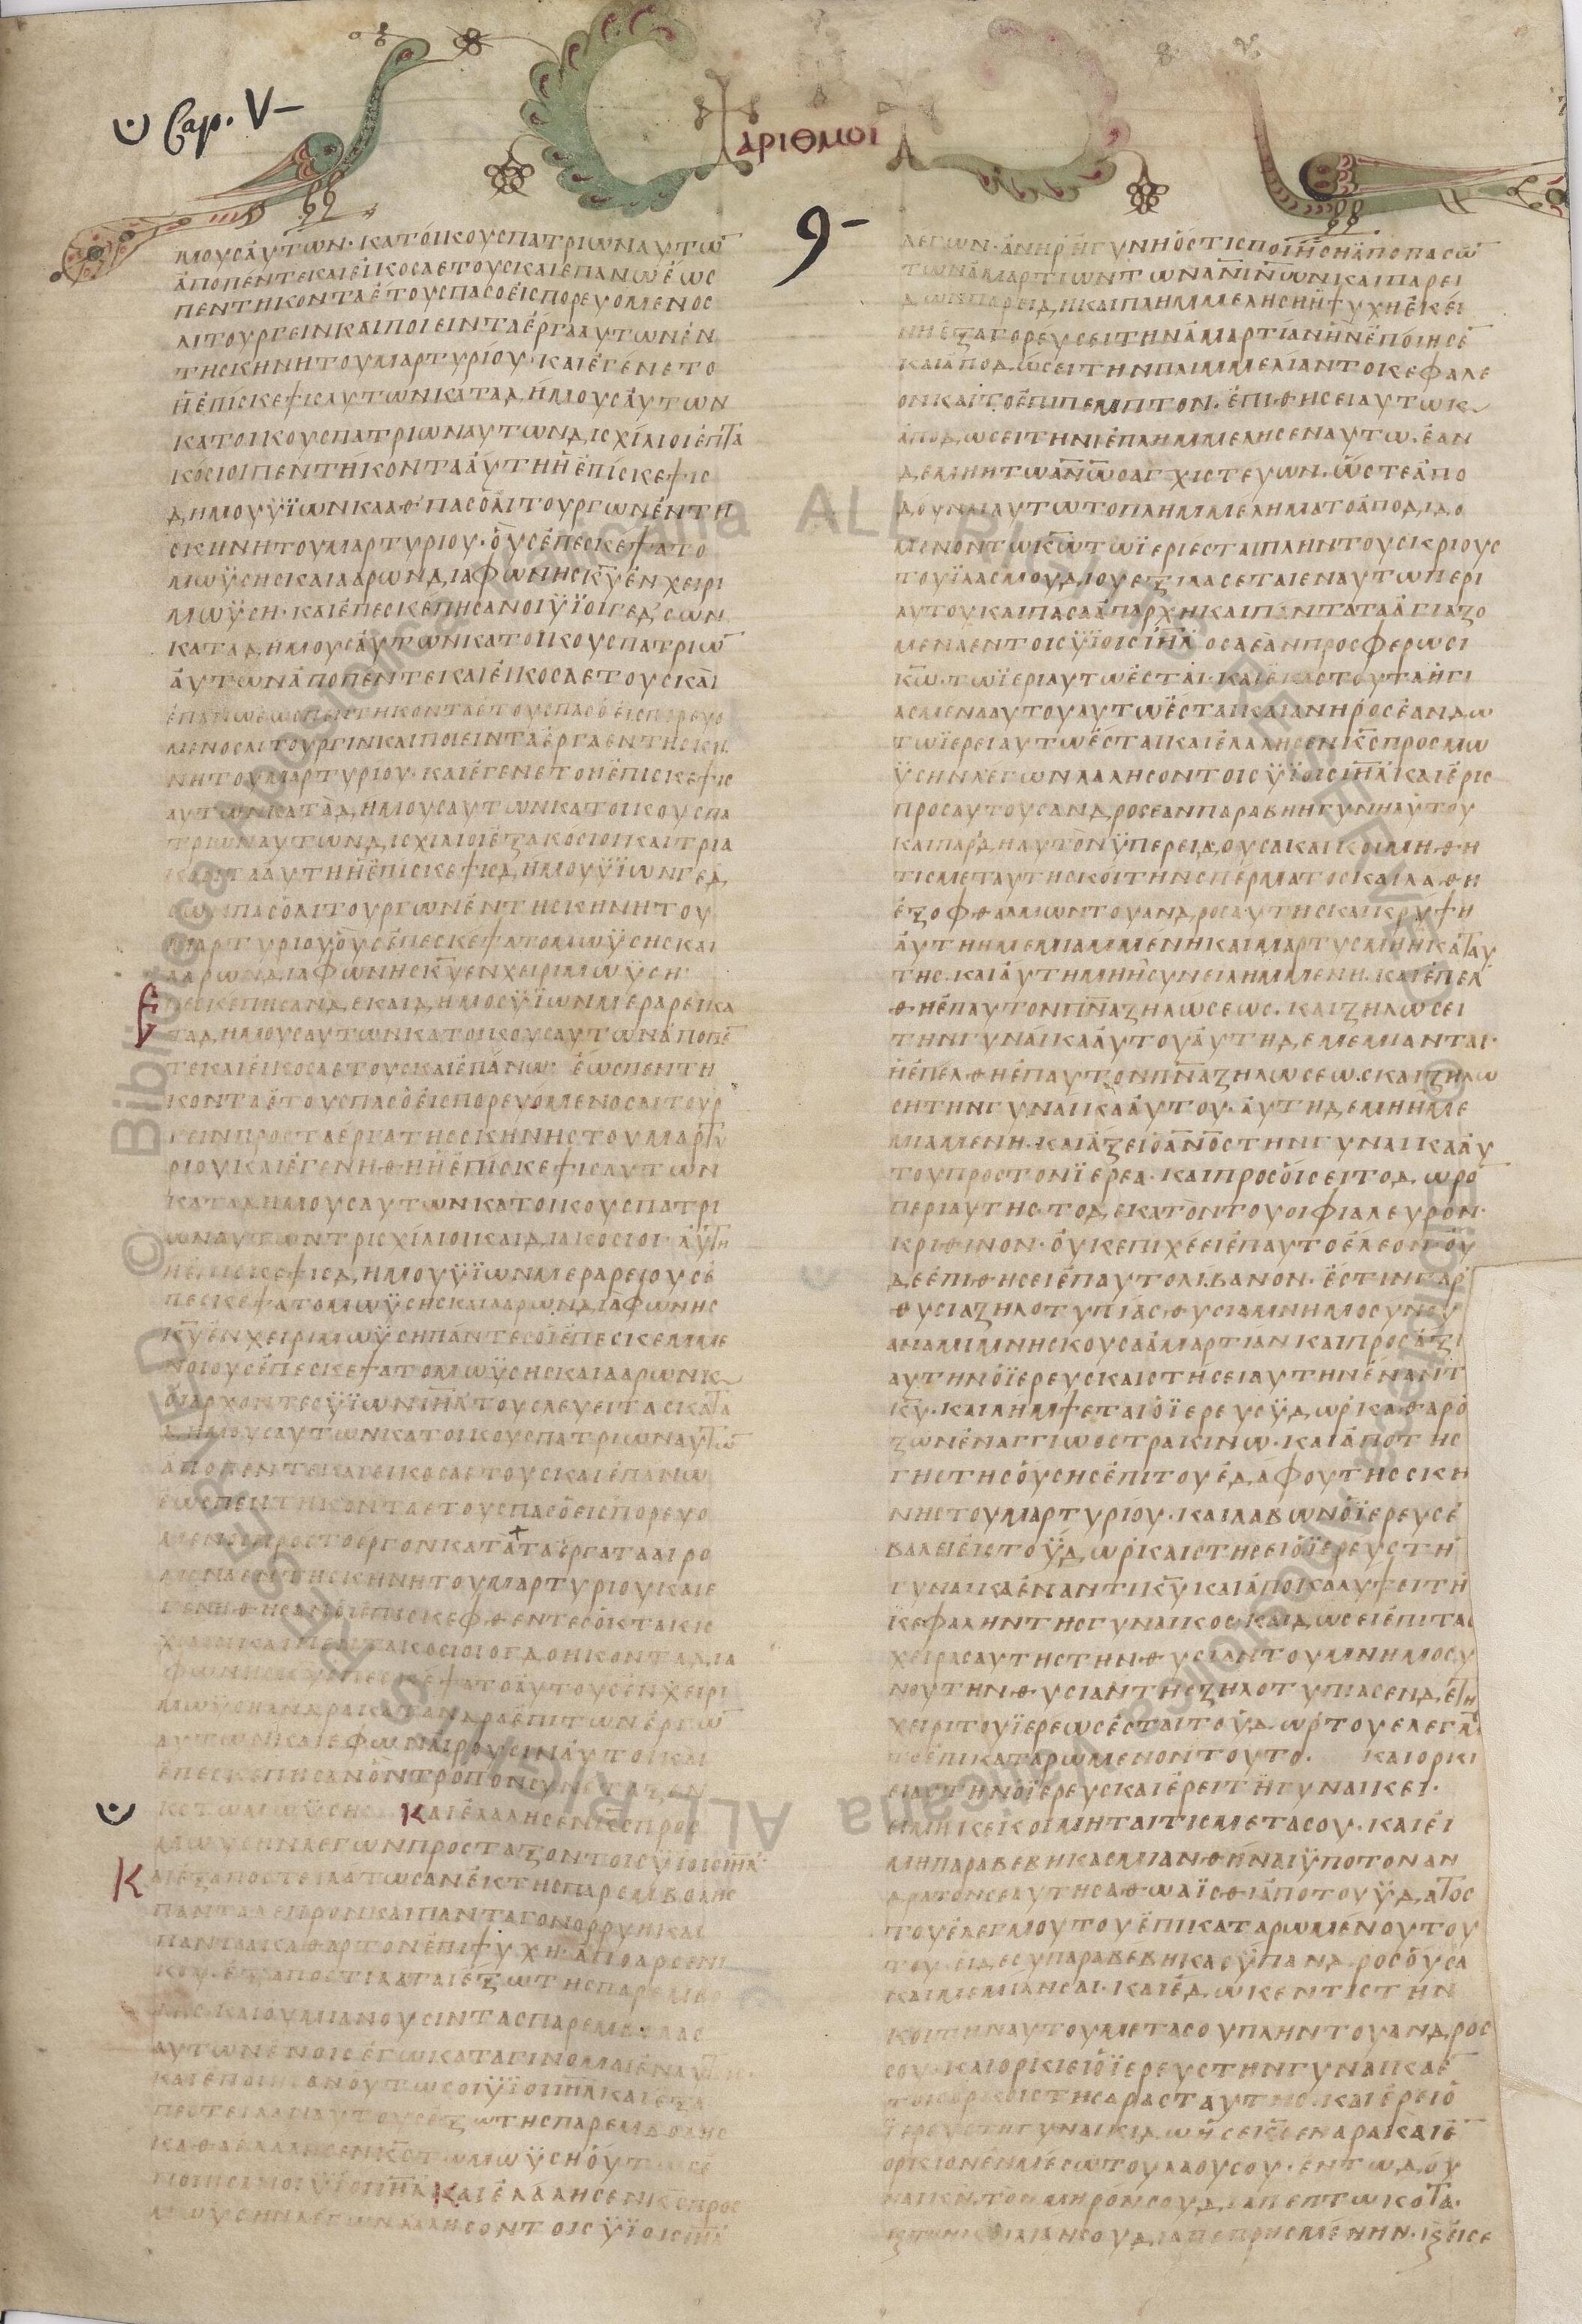 Cap. V
ΑΡΙΘΜΟΙ
9
ΜΟΥΣΑΥΤΩΝ·ΚΑΤΟΙΚΟΥΣΠΑΤΡΙΩΝΑΥΤΩ̅
ΑΠΟΠΕΝΤΕΚΑΙΕΙΚΟΣΑΕΤΟΥΣΚΑΙΕΠΑΝΩΕΩΣ
ΠΕΝΤΗΚΟΝΤΑΕΤΟΥΣΠΑΣΟΕΙΣΠΟΡΕΥΟΜΕΝΟΣ
ΛΙΤΟΥΡΓΕΙΝΚΑΙΠΟΙΕΙΝΤΑΕΡΓΑΑΥΤΩΝΕΝ
ΤΗΣΚΗΝΗΤΟΥΜΑΡΤΥΡΙΟΥ·ΚΑΙΕΓΕΝΕΤΟ
ΗΕΠΙΣΚΕΨΙΣΑΥΤΩΝΚΑΤΑΔΗΜΟΥΣΑΥΤΩΝ
ΚΑΤΟΙΚΟΥΣΠΑΤΡΙΩΝΑΥΤΩΝΔΙΣΧΙΛΙΟΙΕΠΤΑ
ΚΟΣΙΟΙΠΕΝΤΗΚΟΝΤΑΑΥΤΗΗΕΠΙΣΚΕΨΙΣ
ΔΗΜΟΥΫΙΩΝΚΑΑΘΠΑΣΟΛΙΤΟΥΡΓΩΝΕΝΤΗ
ΣΚΗΝΗΤΟΥΜΑΡΤΥΡΙΟΥ·ΟΥΣΕΠΕΣΚΕΨΑΤΟ
ΜΩΫΣΗΣΚΑΙΑΑΡΩΝΔΙΑΦΩΝΗΣΚ̅Υ̅ΕΝΧΕΙΡΙ
ΜΩΫΣΗ·ΚΑΙΕΠΕΣΚΕΠΗΣΑΝΟΙΫΪΟΙΓΕΔΣΩΝ
ΚΑΤΑΔΗΜΟΥΣΑΥΤΩΝΚΑΤΟΙΚΟΥΣΠΑΤΡΙΩ̅
ΑΥΤΩΝΑΠΟΠΕΝΤΕΚΑΙΕΙΚΟΣΑΕΤΟΥΣΚΑΙ
ΕΠΑΝΩΕΩΣΠΕΝΤΗΚΟΝΤΑΕΤΟΥΣΠΑΣΟΕΙΣΠΟΡΕΥΟ
ΜΕΝΟΣΛΙΤΟΥΡΓΙΝΚΑΙΠΟΙΕΙΝΤΑΕΡΓΑΕΝΤΗΣΚΗ
ΝΗΤΟΥΜΑΡΤΥΡΙΟΥ·ΚΑΙΕΓΕΝΕΤΟΗΕΠΙΣΚΕΨΙΣ
ΑΥΤΩΝΚΑΤΑΔΗΜΟΥΣΑΥΤΩΝΚΑΤΟΙΚΟΥΣΠΑ
ΤΡΙΩΝΑΥΤΩΝΔΙΣΧΙΛΙΟΙΕΞΑΚΟΣΙΟΙΚΑΙΤΡΙΑ
ΚΟΝΤΑΑΥΤΗΗΕΠΙΣΚΕΨΙΣΔΗΜΟΥΫΪΩΝΓΕΔ
ΣΩΝΠΑΣΟΛΙΤΟΥΡΓΩΝΕΝΤΗΣΚΗΝΗΤΟΥ
ΜΑΡΤΥΡΙΟΥΟΥΣΕΠΕΣΚΕΨΑΤΟΜΩΫΣΗΣΚΑΙ
ΑΑΡΩΝΔΙΑΦΩΝΗΣΚ̅Υ̅ΕΝΧΕΙΡΙΜΩΫΣΗ
ΕΠΕΣΚΕΠΗΣΑΝΔΕΚΑΙΔΗΜΟΣΫΪΩΝΜΕΡΑΡΕΙΚΑ
ΤΑΔΗΜΟΥΣΑΥΤΩΝΚΑΤΟΙΚΟΥΣΑΥΤΩΝΑΠΟΠΕ̅
ΤΕΚΑΙΕΙΚΟΣΑΕΤΟΥΣΚΑΙΕΠΑΝΩ· ΕΩΣΠΕΝΤΗ
ΚΟΝΤΑΕΤΟΥΣΠΑΣΟΕΙΣΠΟΡΕΥΟΜΕΝΟΣΛΙΤΟΥΡ
ΓΕΙΝΠΡΟΣΤΑΕΡΓΑΤΗΣΣΚΗΝΗΣΤΟΥΜΑΡΤΥ
ΡΙΟΥΚΑΙΕΓΕΝΗΘΗΗΕΠΙΣΚΕΨΙΣΑΥΤΩΝ
ΚΑΤΑΔΗΜΟΥΣΑΥΤΩΝΚΑΤΟΙΚΟΥΣΠΑΤΡΙ
ΩΝΑΥΤΩΝΤΡΙΣΧΙΛΙΟΙΚΑΙΔΙΑΚΟΣΙΟΙ·ΑΥΤΗ
ΗΕΠΙΣΚΕΨΙΣΔΗΜΟΥΫΪΩΝΜΕΡΑΡΕΙΟΥΣΕ
ΠΕΣΚΕΨΑΤΟΜΩΫΣΗΣΚΑΙΑΑΡΩΝΔΙΑΦΩΝΗΣ
Κ̅Υ̅ΕΝΧΕΙΡΙΜΩΫΣΗΠΑΝΤΕΣΟΙΕΠΕΣΚΕΜΜΕ
ΝΟΙΟΥΣΕΠΕΣΚΕΨΑΤΟΜΩΫΣΗΣΚΑΙΑΑΡΩΝΚ
ΟΙΑΡΧΟΝΤΕΣΫΪΩΝΙ̅Η̅Λ̅ΤΟΥΣΛΕΥΕΙΤΑΣΚΑΤΑ
ΔΗΜΟΥΣΑΥΤΩΝΚΑΤΟΙΚΟΥΣΠΑΤΡΙΩΝΑΥΤΩ̅
ΑΠΟΠΕΝΤΕΚΑΙΕΙΚΟΣΑΕΤΟΥΣΚΑΙΕΠΑΝΩ
ΕΩΣΠΕΝΤΗΚΟΝΤΑΕΤΟΥΣΠΑΣΟΕΙΣΠΟΡΕΥΟ
ΜΕΝΟΣΠΡΟΣΤΟΕΡΓΟΝΚΑΤΑΤΑΕΡΓΑΤΑΑΙΡΟ
ΜΕΝΑΕΝΤΗΣΚΗΝΗΤΟΥΜΑΡΤΥΡΙΟΥΚΑΙΕ
ΓΕΝΗΘΗΣΑΝΟΙΕΠΙΣΚΕΦΘΕΝΤΕΣΟΚΤΑΚΙΣ
ΧΙΛΙΟΙΚΑΙΠΕΝΤΑΚΟΣΙΟΙΟΓΔΟΗΚΟΝΤΑΔΙΑ
ΦΩΝΗΣΚ̅Υ̅ΕΠΕΣΚΕΨΑΤΟΑΥΤΟΥΣΕΝΧΕΙΡΙ
ΜΩΫΣΗΑΝΔΡΑΚΑΤΑΝΔΡΑΕΠΙΤΩΝΕΡΓΩ̅
ΑΥΤΩΝΚΑΙΕΦΩΝΑΙΡΟΥΣΙΝΑΥΤΟΙΚΑΙ
ΕΠΕΣΚΕΠΗΣΑΝΟΝΤΡΟΠΟΝΣΥΝΕΤΑΞΕΝ
Κ̅Σ̅ΤΩΜΩΫΣΗ ΚΑΙΕΛΑΛΗΣΕΝΚ̅Σ̅ΠΡΟΣ
ΜΩΫΣΗΝΛΕΓΩΝΠΡΟΣΤΑΞΟΝΤΟΙΣΫΪΟΙΣΙ̅Η̅Λ̅
ΚΑΙΕΞΑΠΟΣΤΕΙΛΑΤΩΣΑΝΕΚΤΗΣΠΑΡΕΜΒΟΛΗΣ
ΠΑΝΤΑΛΕΠΡΟΝΚΑΙΠΑΝΤΑΓΟΝΟΡΡΥΗΚΑΙ
ΠΑΝΤΑΑΚΑΘΑΡΤΟΝΕΠΙΨΥΧΗ·ΑΠΟΑΡΣΕΝΙ
ΚΟΥ·ΕΞΑΠΟΣΤΙΛΑΤΑΙΕΞΩΤΗΣΠΑΡΕΜΒ
ΛΗΣ·ΚΑΙΟΥΜΙΑΝΟΥΣΙΝΤΑΣΠΑΡΕΜΒΟΛΑΣ
ΑΥΤΩΝΕΝΟΙΣΕΓΩΚΑΤΑΓΙΝΟΜΑΙΕΝΑΥΤΟΙΣ·
ΚΑΙΕΠΟΙΗΣΑΝΟΥΤΩΣΟΙΫΪΟΙΙ̅Η̅Λ̅ΚΑΙΕΞΑ
ΠΕΣΤΕΙΛΑΝΑΥΤΟΥΣΕΞΩΤΗΣΠΑΡΕΜΒΟΛΗΣ
ΚΑΘΑΕΛΑΛΗΣΕΝΚ̅Σ̅ΤΩΜΩΫΣΗΟΥΤΩΣΕ
ΠΟΙΗΣΑΝΟΙΫΪΟΙΙ̅Η̅Λ̅ ΚΑΙΕΛΑΛΗΣΕΝΚ̅Σ̅ΠΡΟΣ
ΜΩΥΣΗΝΛΕΓΩΝΛΑΛΗΣΟΝΤΟΙΣΫΪΟΙΣΙ̅Η̅Λ̅
ΛΕΓΩΝ·ΑΝΗΡΗΓΥΝΗΟΣΤΙΣΠΟΙΗΣΗΑΠΟΠΑΣΩ̅
ΤΩΝΑΜΑΡΤΙΩΝΤΩΝΑ̅Ν̅Ι̅Ν̅ΩΝΚΑΙΠΑΡΕΙ
ΔΩΝΠΑΡΕΙΔΗΚΑΙΠΛΗΜΜΕΛΗΣΗΗΨΥΧΗΕΚΕΙ
ΝΗΕΞΑΓΟΡΕΥΣΕΙΤΗΝΑΜΑΡΤΙΑΝΗΝΕΠΟΙΗΣΕ̅
ΚΑΙΑΠΟΔΩΣΕΙΤΗΝΠΛΙΜΜΕΛΙΑΝΤΟΚΕΦΑΛΕ
ΟΝΚΑΙΤΟΕΠΙΠΕΜΠΤΟΝ·ΕΠΙΘΗΣΕΙΑΥΤΩΚ
ΑΠΟΔΩΣΕΙΤΗΝΙΕΠΛΗΜΜΕΛΗΣΕΝΑΥΤΩ·ΕΑΝ
ΔΕΜΗΗΤΩΑ̅Ν̅Ω̅ΟΑΓΧΙΣΤΕΥΩΝ·ΩΣΤΕΑΠΟ
ΔΟΥΝΑΙΑΥΤΩΤΟΠΛΗΜΜΕΛΗΜΑΤΟΑΠΟΔΙΔΟ
ΜΕΝΟΝΤΩΚ̅Ω̅ΤΩΪΕΡΙΕΣΤΑΙΠΛΗΝΤΟΥΣΚΡΙΟΥΣ
ΤΟΥΪΛΑΣΜΟΥΔΙΟΥΕΞΙΛΑΣΕΤΑΙΕΝΑΥΤΩΠΕΡΙ
ΑΥΤΟΥΚΑΙΠΑΣΑΑΠΑΡΧΗΚΑΙΠΑΝΤΑΤΑΑΓΙΑΖΟ
ΜΕΝΑΕΝΤΟΙΣΫΪΟΙΣΙ̅Η̅Λ̅ΟΣΑΕΑΝΠΡΟΣΦΕΡΩΣΙ
Κ̅Ω̅·ΤΩΪΕΡΙΑΥΤΩΕΣΤΑΙ·ΚΑΙΕΚΑΣΤΟΥΤΑΗΓΙ
ΑΣΜΕΝΑΑΥΤΟΥΑΥΤΩΕΣΤΑΙΚΑΙΑΝΗΡΟΣΕΑΝΔΩ
ΤΩΪΕΡΕΙΑΥΤΩΕΣΤΑΙΚΑΙΕΛΑΛΗΣΕΝΚ̅Σ̅ΠΡΟΣΜΩ
ΫΣΗΝΛΕΓΩΝΛΑΛΗΣΟΝΤΟΙΣΫΪΟΙΣΙ̅Η̅Λ̅ΚΑΙΕΡΙΣ
ΠΡΟΣΑΥΤΟΥΣΑΝΔΡΟΣΕΑΝΠΑΡΑΒΗΗΓΥΝΗΑΥΤΟΥ
ΚΑΙΠΑΡΔΗΑΥΤΟΝΫΠΕΡΕΙΔΟΥΣΑΚΑΙΚΟΙΜΗΘΗ
ΤΙΣΜΕΤΑΥΤΗΣΚΟΙΤΗΝΣΠΕΡΜΑΤΟΣΚΑΙΛΑΘΗ
ΕΞΟΦΘΑΛΜΩΝΤΟΥΑΝΔΡΟΣΑΥΤΗΣΚΑΙΚΡΥΨΗ
ΑΥΤΗΗΜΕΜΙΑΜΜΕΝΗΚΑΙΜΑΡΤΥΣΜΗΗΚΑΤΑΥ
ΤΗΣ·ΚΑΙΑΥΤΗΜΗΗΣΥΝΕΙΛΗΜΜΕΝΗ·ΚΑΙΕΠΕΛ
ΘΗΕΠΑΥΤΟΝΠ̅Ν̅Α̅ΖΗΛΩΣΕΩΣ·ΚΑΙΖΗΛΩΣΕΙ
ΤΗΝΓΥΝΑΙΚΑΑΥΤΟΥΑΥΤΗΔΕΜΕΜΙΑΝΤΑΙ·
ΗΕΠΕΛΘΗΕΠΑΥΤΟΝΠ̅Ν̅Α̅ΖΗΛΩΣΕΩΣΚΑΙΖΗΛΩ
ΣΗΤΗΝΓΥΝΑΙΚΑΑΥΤΟΥ·ΑΥΤΗΔΕΜΗΗΜΕ
ΜΙΑΜΕΝΗ·ΚΑΙΑΞΕΙΟΑ̅Ν̅Ο̅Σ̅ΤΗΝΓΥΝΑΙΚΑΑΥ
ΤΟΥΠΡΟΣΤΟΝΪΕΡΕΑ·ΚΑΙΠΡΟΣΟΙΣΕΙΤΟΔΩΡΟ̅
ΠΕΡΙΑΥΤΗΣ·ΤΟΔΕΚΑΤΟΝΤΟΥΟΙΦΙΑΛΕΥΡΟΝ·
ΚΡΙΘΙΝΟΝ·ΟΥΚΕΠΙΧΕΕΙΕΠΑΥΤΟΕΛΕΟΝ·ΟΥ
ΔΕΕΠΙΘΗΣΕΙΕΠΑΥΤΟΛΙΒΑΝΟΝ·ΕΣΤΙΝΓΑΡ
ΘΥΣΙΑΖΗΛΟΤΥΠΙΑΣ·ΘΥΣΙΑΜΝΗΜΟΣΥΝΟΥ
ΑΝΑΜΙΜΝΗΣΚΟΥΣΑΑΜΑΡΤΙΑΝΚΑΙΠΡΟΣΑΞΙ
ΑΥΤΗΝΟΪΕΡΕΥΣΚΑΙΣΤΗΣΕΙΑΥΤΗΝΕΝΑΝΤ
Κ̅Υ̅·ΚΑΙΛΗΜΨΕΤΑΙΟΪΕΡΕΥΣΫΔΩΡΚΑΘΑΡΟ
ΖΩΝΕΝΑΓΓΙΩΟΣΤΡΑΚΙΝΩ·ΚΑΙΑΠΟΤΗΣ
ΓΗΣΤΗΣΟΥΣΗΣΕΠΙΤΟΥΕΔΑΦΟΥΤΗΣΣΚΗ
ΝΗΣΤΟΥΜΑΡΤΥΡΙΟΥ·ΚΑΙΛΑΒΩΝΟΪΕΡΕΥΣΕ
ΒΑΛΕΙΕΙΣΤΟΫΔΩΡΚΑΙΣΤΗΣΕΙΟΪΕΡΕΥΣΤΗ
ΓΥΝΑΙΚΑΕΝΑΝΤΙΚ̅Υ̅ΚΑΙΑΠΟΚΑΛΥΨΕΙΤΗ
ΚΕΦΑΛΗΝΤΗΣΓΥΝΑΙΚΟΣ·ΚΑΙΔΩΣΕΙΕΠΙΤΑΣ
ΧΕΙΡΑΣΑΥΤΗΣΤΗΝΘΥΣΙΑΝΤΟΥΜΝΗΜΟΣΥ
ΝΟΥΤΗΝΘΥΣΙΑΝΤΗΣΖΗΛΟΤΥΠΙΑΣΕΝΔΕΤΗ
ΧΕΙΡΙΤΟΥΪΕΡΕΩΣΕΣΤΑΙΤΟΫΔΩΡΤΟΥΕΛΕΓΜ
ΤΟΕΠΙΚΑΤΑΡΩΜΕΝΟΝΤΟΥΤΟ· ΚΑΙΟΡΚΙ
ΕΙΑΥΤΗΝΟΪΕΡΕΥΣΚΑΙΕΡΕΙΤΗΓΥΝΑΙΚΕΙ·
ΕΙΜΗΚΕΚΟΙΜΗΤΑΙΤΙΣΜΕΤΑΣΟΥ·ΚΑΙΕΙ
ΜΗΠΑΡΑΒΕΒΗΚΑΣΜΙΑΝΘΗΝΑΙΫΠΟΤΟΝΑΝ
ΔΡΑΤΟΝΣΕΑΥΤΗΣΑΘΩΑΪΣΘΙΑΠΟΤΟΥΫΔΑΤΟΣ
ΤΟΥΕΛΕΓΜΟΥΤΟΥΕΠΙΚΑΤΑΡΩΜΕΝΟΥΤΟΥ
ΤΟΥ·ΕΙΔΕΣΥΠΑΡΑΒΕΒΗΚΑΣΫΠΑΝΔΡΟΣΟΥΣΑ
ΚΑΙΜΕΜΙΑΝΣΑΙ·ΚΑΙΕΔΩΚΕΝΤΙΣΤΗΝ
ΚΟΙΤΗΝΑΥΤΟΥΜΕΤΑΣΟΥΠΛΗΝΤΟΥΑΝΔΡΟΣ
ΣΟΥ·ΚΑΙΟΡΚΙΕΙΟΪΕΡΕΥΣΤΗΝΓΥΝΑΙΚΑΕ̅
ΤΟΙΣΟΡΚΟΙΣΤΗΣΑΡΑΣΤΑΥΤΗΣ·ΚΑΙΕΡΕΙΟ
ΪΕΡΕΥΣΤΗΓΥΝΑΙΚΙΔΩΗΣΕΚ̅Σ̅ΕΝΑΡΑΚΑΙΕ̅
ΟΡΚΙΟΝΕΝΜΕΣΩΤΟΥΛΑΟΥΣΟΥ·ΕΝΤΩΔΟΥ
ΝΑΙΚ̅Ν̅ΤΟΝΜΗΡΟΝΣΟΥΔΙΑΠΕΠΤΩΚΟΤΑ·
ΚΑΙΤΗΝΚΟΙΛΙΑΝΣΟΥΔΙΑΠΕΠΡΗΣΜΕΝΗΝ·